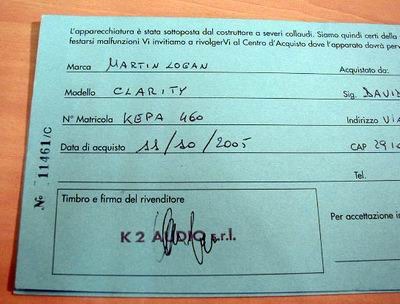 L'apparecchiatura è stata sottoposta dal costruttore a severi collaudi. Siamo quindi certi della
festarsi malfunzioni Vi invitiamo a rivolgerVi al Centro d'Acquisto dove l'apparato dovrà per
Marca MARTIN LOGAN Acquistato da:
Modello CLARITY Sig. DAVID
N° Matricola KEPA 460 Indirizzo VIA
Data di acquisto 11/10/2005 CAP 2910
Tel.
N° 11461/C
Timbro e firma del rivenditore
K2 AUDIO s.r.l.
Per accettazione i